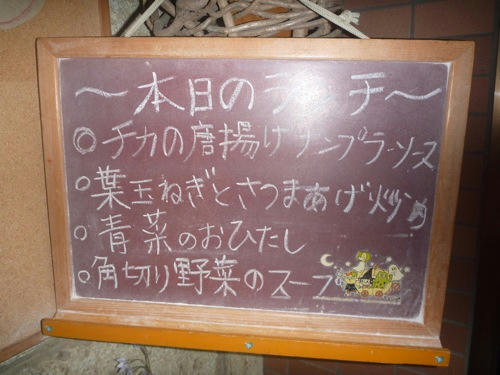 ～本日のランチ～
◎チカの唐揚げサンプラーソース
○葉玉ねぎとさつまあげ炒め
○青菜のおひたし
○角切り野菜のスープ